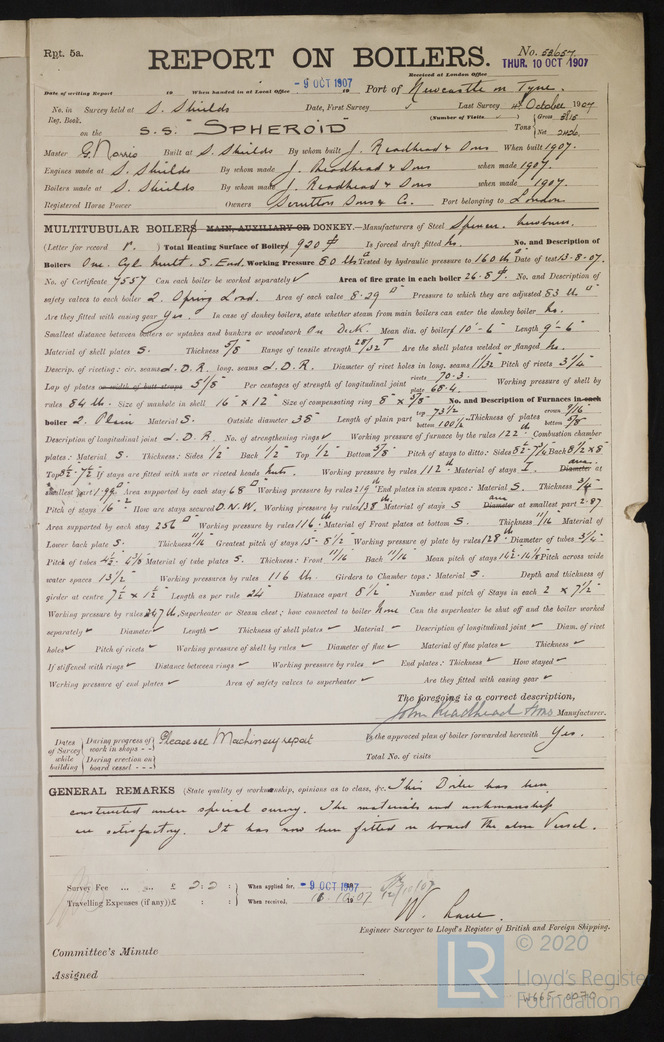 Rpt. 5a.
REPORT ON BOILERS.
No. 53657
THUR. 10 OCT 1907
Received at London Office
- 9 OCT 1907
Date of writing Report 19 When handed in at Local Office 19 Port of Newcastle on Tyne.
No. in Survey held at S. Shields Date, First Survey ✓ Last Survey 4 October 1907
Reg. Book. (Number of Visits ✓ ) Gross 3515
on the S.S. "SPHEROID" Tons Net 2426
Master G. Norris Built at S. Shields By whom built J. Readhead & Sons When built 1907.
Engines made at S. Shields By whom made J. Readhead & Sons when made 1907.
Boilers made at S. Shields By whom made J. Readhead & Sons when made 1907.
Registered Horse Power Owners Scrutton Sons & Co. Port belonging to London
MULTITUBULAR BOILERS MAIN, AUXILIARY OR DONKEY.—Manufacturers of Steel Spencer Newburn.
(Letter for record r. ) Total Heating Surface of Boilers 920 Is forced draft fitted No. No. and Description of
Boilers One. Cyl. Mult. S. End. Working Pressure 80 lb Tested by hydraulic pressure to 160 lb Date of test 13.8.07.
No. of Certificate 7557 Can each boiler be worked separately ✓ Area of fire grate in each boiler 26.8 No. and Description of
safety valves to each boiler 2. Spring Load. Area of each valve 8.29 Pressure to which they are adjusted 83 lb
Are they fitted with easing gear Yes. In case of donkey boilers, state whether steam from main boilers can enter the donkey boiler No.
Smallest distance between boilers or uptakes and bunkers or woodwork On Deck. Mean dia. of boilers 10'-6" Length 9'-6"
Material of shell plates S. Thickness 5/8 Range of tensile strength 28/32 T Are the shell plates welded or flanged No.
Descrip. of riveting: cir. seams L.D.R. long. seams L.D.R. Diameter of rivet holes in long. seams 1 1/32 Pitch of rivets 3 1/4
Lap of plates or width of butt straps 5 1/8 Per centages of strength of longitudinal joint rivets 70.3 plate 68.4 Working pressure of shell by
rules 84 lb. Size of manhole in shell 16" x 12" Size of compensating ring 8" x 5/8" No. and Description of Furnaces in each
boiler 2. Plain Material S. Outside diameter 38" Length of plain part top 73 1/2 bottom 100 1/2 Thickness of plates crown 9/16 bottom 5/8
Description of longitudinal joint L.D.R. No. of strengthening rings ✓ Working pressure of furnace by the rules 122 lb Combustion chamber
plates: Material S. Thickness: Sides 1/2 Back 1/2 Top 1/2 Bottom 5/8 Pitch of stays to ditto: Sides 8 1/2 - 7 3/4 Back 8 1/2 x 8
Top 8 1/2 - 7 1/2 If stays are fitted with nuts or riveted heads Nuts. Working pressure by rules 112 lb Material of stays I. area Diameter at
smallest part 1.99 Area supported by each stay 68 Working pressure by rules 219 lb End plates in steam space: Material S. Thickness 3/4
Pitch of stays 16" How are stays secured D.N.W. Working pressure by rules 138 lb Material of stays S area Diameter at smallest part 2.87
Area supported by each stay 256 Working pressure by rules 116 lb Material of Front plates at bottom S. Thickness 11/16 Material of
Lower back plate S. Thickness 11/16 Greatest pitch of stays 15 - 8 1/2 Working pressure of plate by rules 128 lb Diameter of tubes 3 1/4
Pitch of tubes 4 1/2 - 4 5/8 Material of tube plates S. Thickness: Front 11/16 Back 11/16 Mean pitch of stays Pitch across wide
water spaces 13 1/2 Working pressures by rules 116 lb Girders to Chamber tops: Material S. Depth and thickness of
girder at centre 7 1/2 x 1 1/2 Length as per rule 24" Distance apart 8 1/2 Number and pitch of Stays in each 2 x 7 1/2
Working pressure by rules 247 lb. Superheater or Steam chest; how connected to boiler None Can the superheater be shut off and the boiler worked
separately ✓ Diameter ✓ Length ✓ Thickness of shell plates ✓ Material ✓ Description of longitudinal joint ✓ Diam. of rivet
holes ✓ Pitch of rivets ✓ Working pressure of shell by rules ✓ Diameter of flue ✓ Material of flue plates ✓ Thickness ✓
If stiffened with rings ✓ Distance between rings ✓ Working pressure by rules ✓ End plates: Thickness ✓ How stayed ✓
Working pressure of end plates ✓ Area of safety valves to superheater ✓ Are they fitted with easing gear ✓
The foregoing is a correct description,
John Readhead & Sons Manufacturer.
Dates of Survey while building During progress of work in shops - - Please see Machinery report Is the approved plan of boiler forwarded herewith Yes.
During erection on board vessel - - - Total No. of visits
GENERAL REMARKS (State quality of workmanship, opinions as to class, &c. This Boiler has been
constructed under special survey. The materials and workmanship
are satisfactory. It has now been fitted on board the above Vessel.
Survey Fee ... ... £ 2 : 2 : When applied for, - 9 OCT 1907
Travelling Expenses (if any) £ : : When received, 16.10.07
W. Lane.
Engineer Surveyor to Lloyd's Register of British and Foreign Shipping.
Committee's Minute
Assigned
LR
© 2020
Lloyd's Register
Foundation
W665-0070